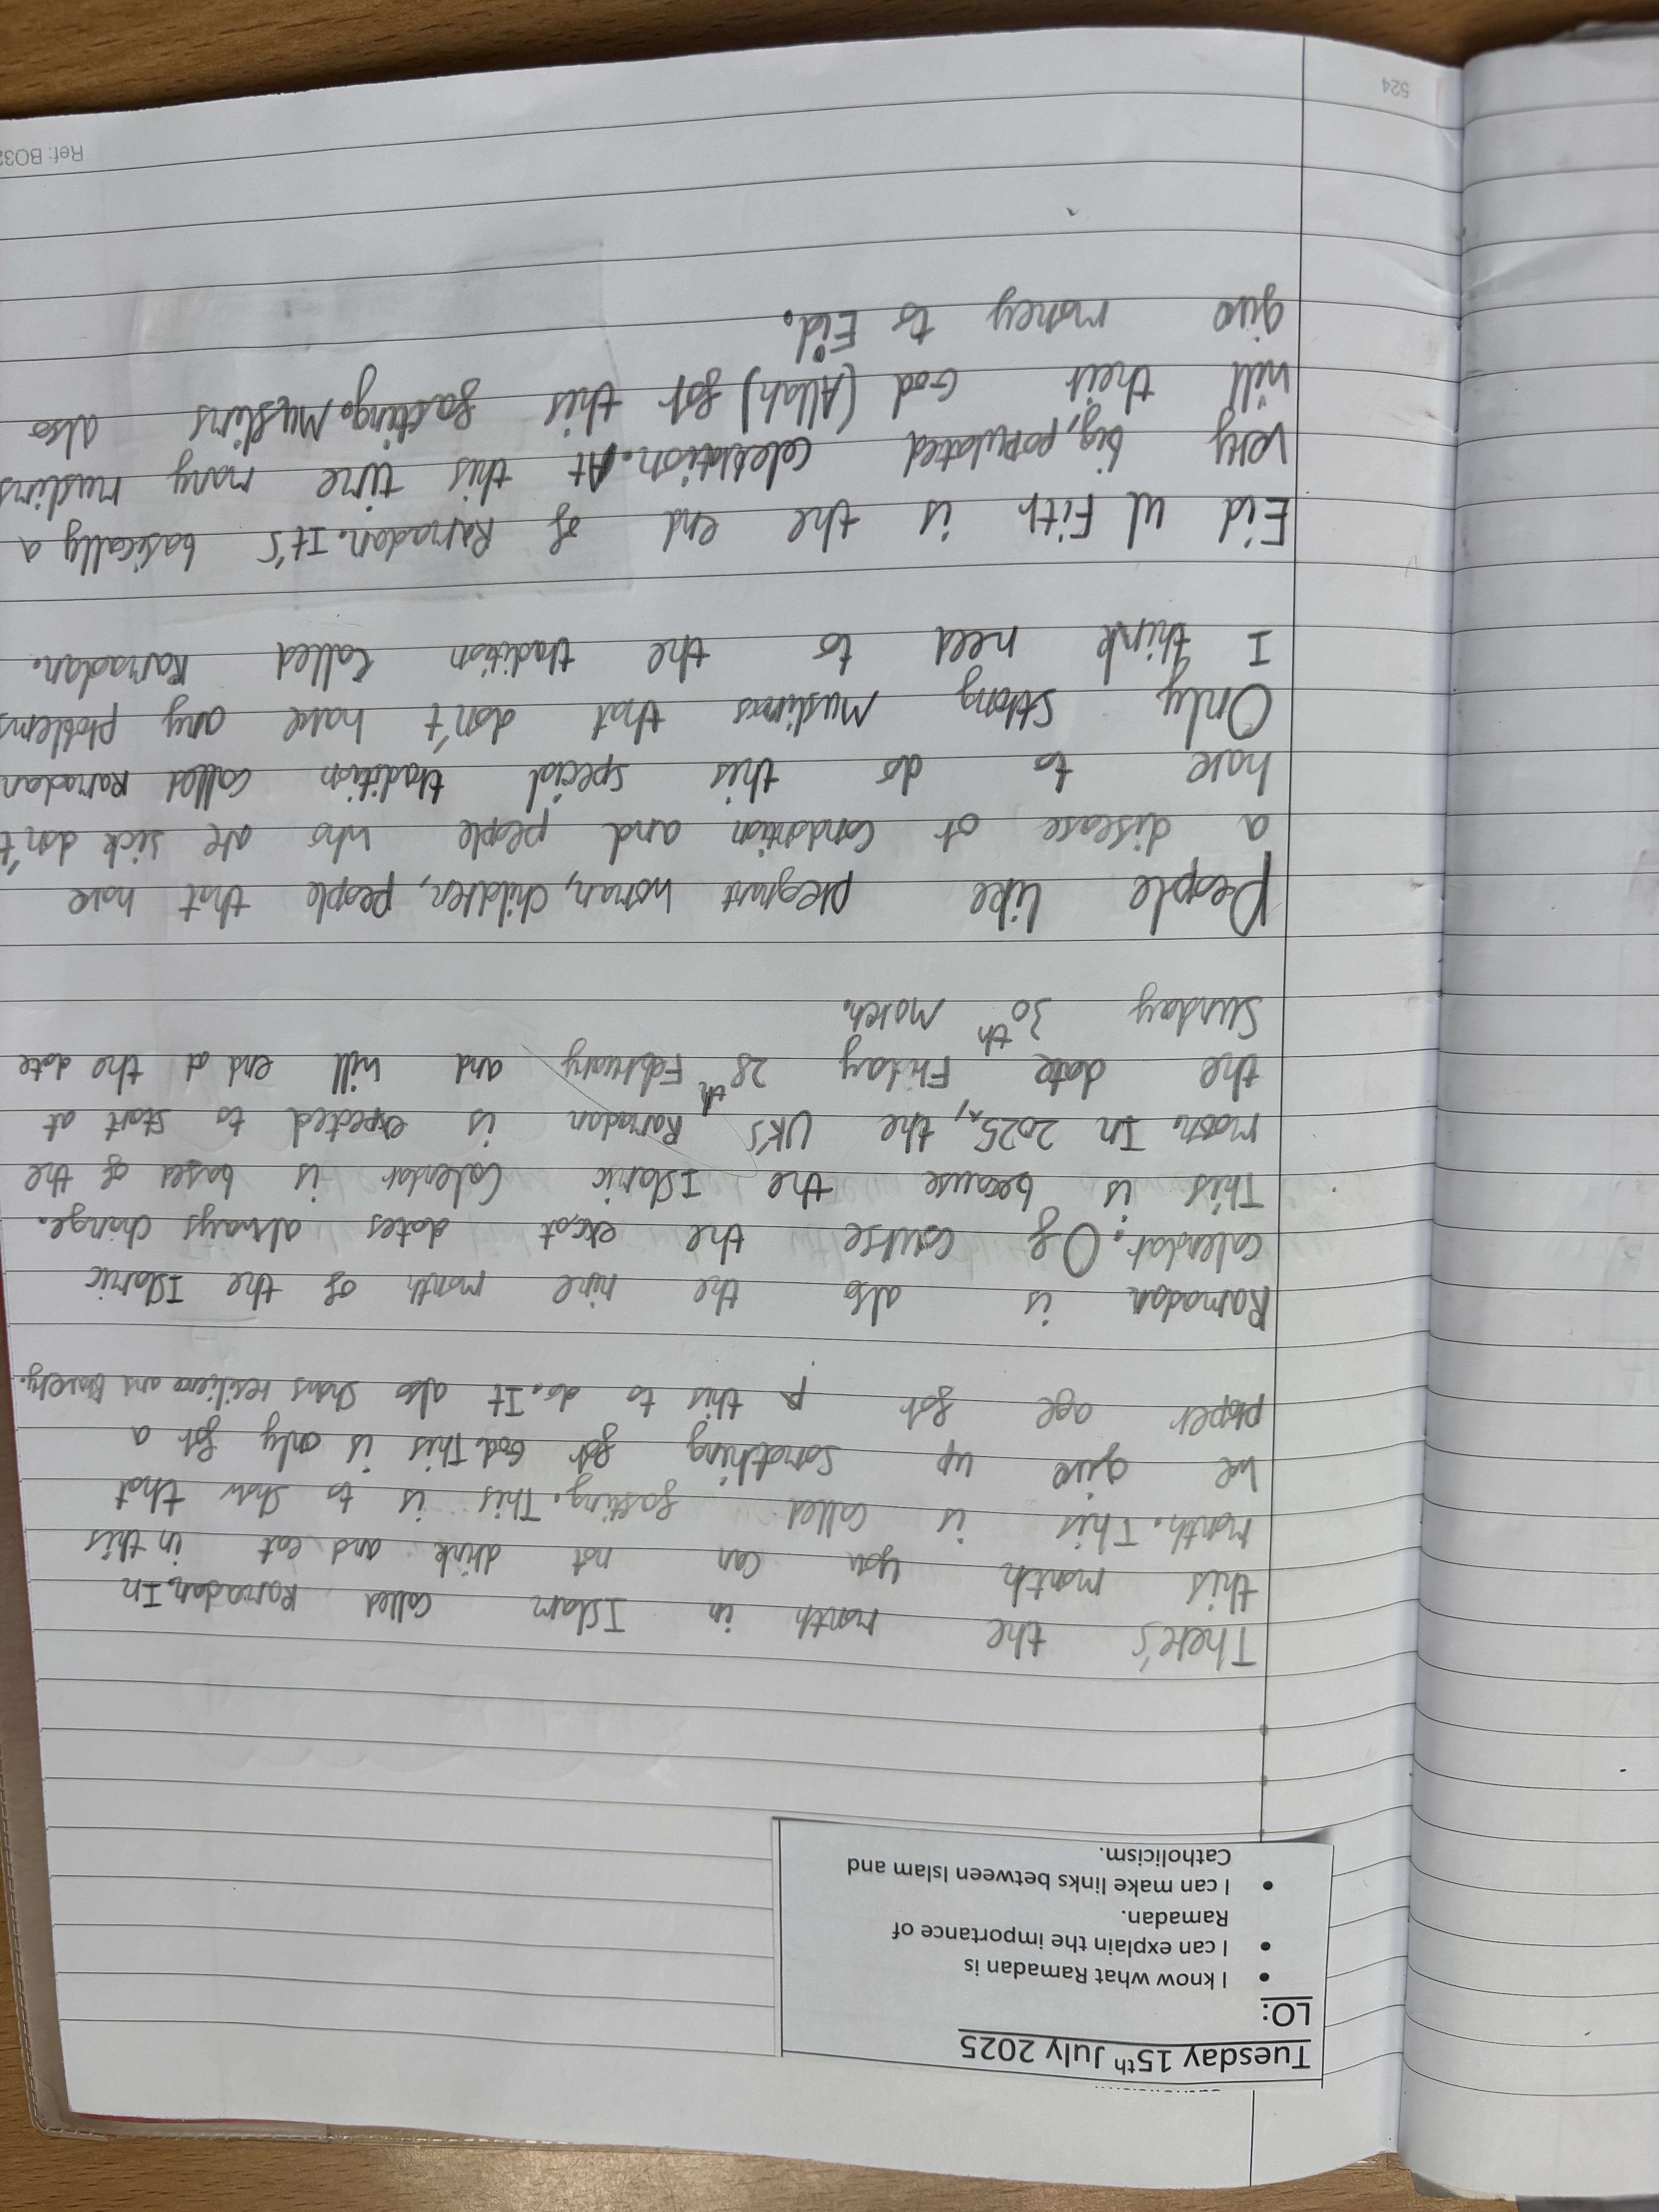 Tuesday 15th July 2025
LO:
• I know what Ramadan is
• I can explain the importance of
Ramadan.
• I can make links between Islam and
Catholicism.
There's the month in Islam called Ramadan. In
this month you can not drink and eat in this
month. This is called fasting. This is to show that
we give up something for God. This is only for a
proper age for this to do. It also shows resilience and bravery.
Ramadan is also the nine month of the Islamic
calendar. Of course the excat dates always change.
This is because the Islamic Calendar is bases of the
moon. In 2025, the UK's Ramadan is expected to start at
the date Friday 28th February and will end at the date
Sunday 30th March.
People like pregnant woman, children, people that have
a disease or condortion and people who are sick don't
have to do this special tradition called Ramadan
Only strong muslims that don't have any problems
I think need to the tradition called Ramadan.
Eid ul Fitr is the end of Ramadan. It's basically a
very big, populated celebration. At this time many muslims
will their God (Allah) for this fasting. Muslims also
give money to Eid.
524
Ref: BO32